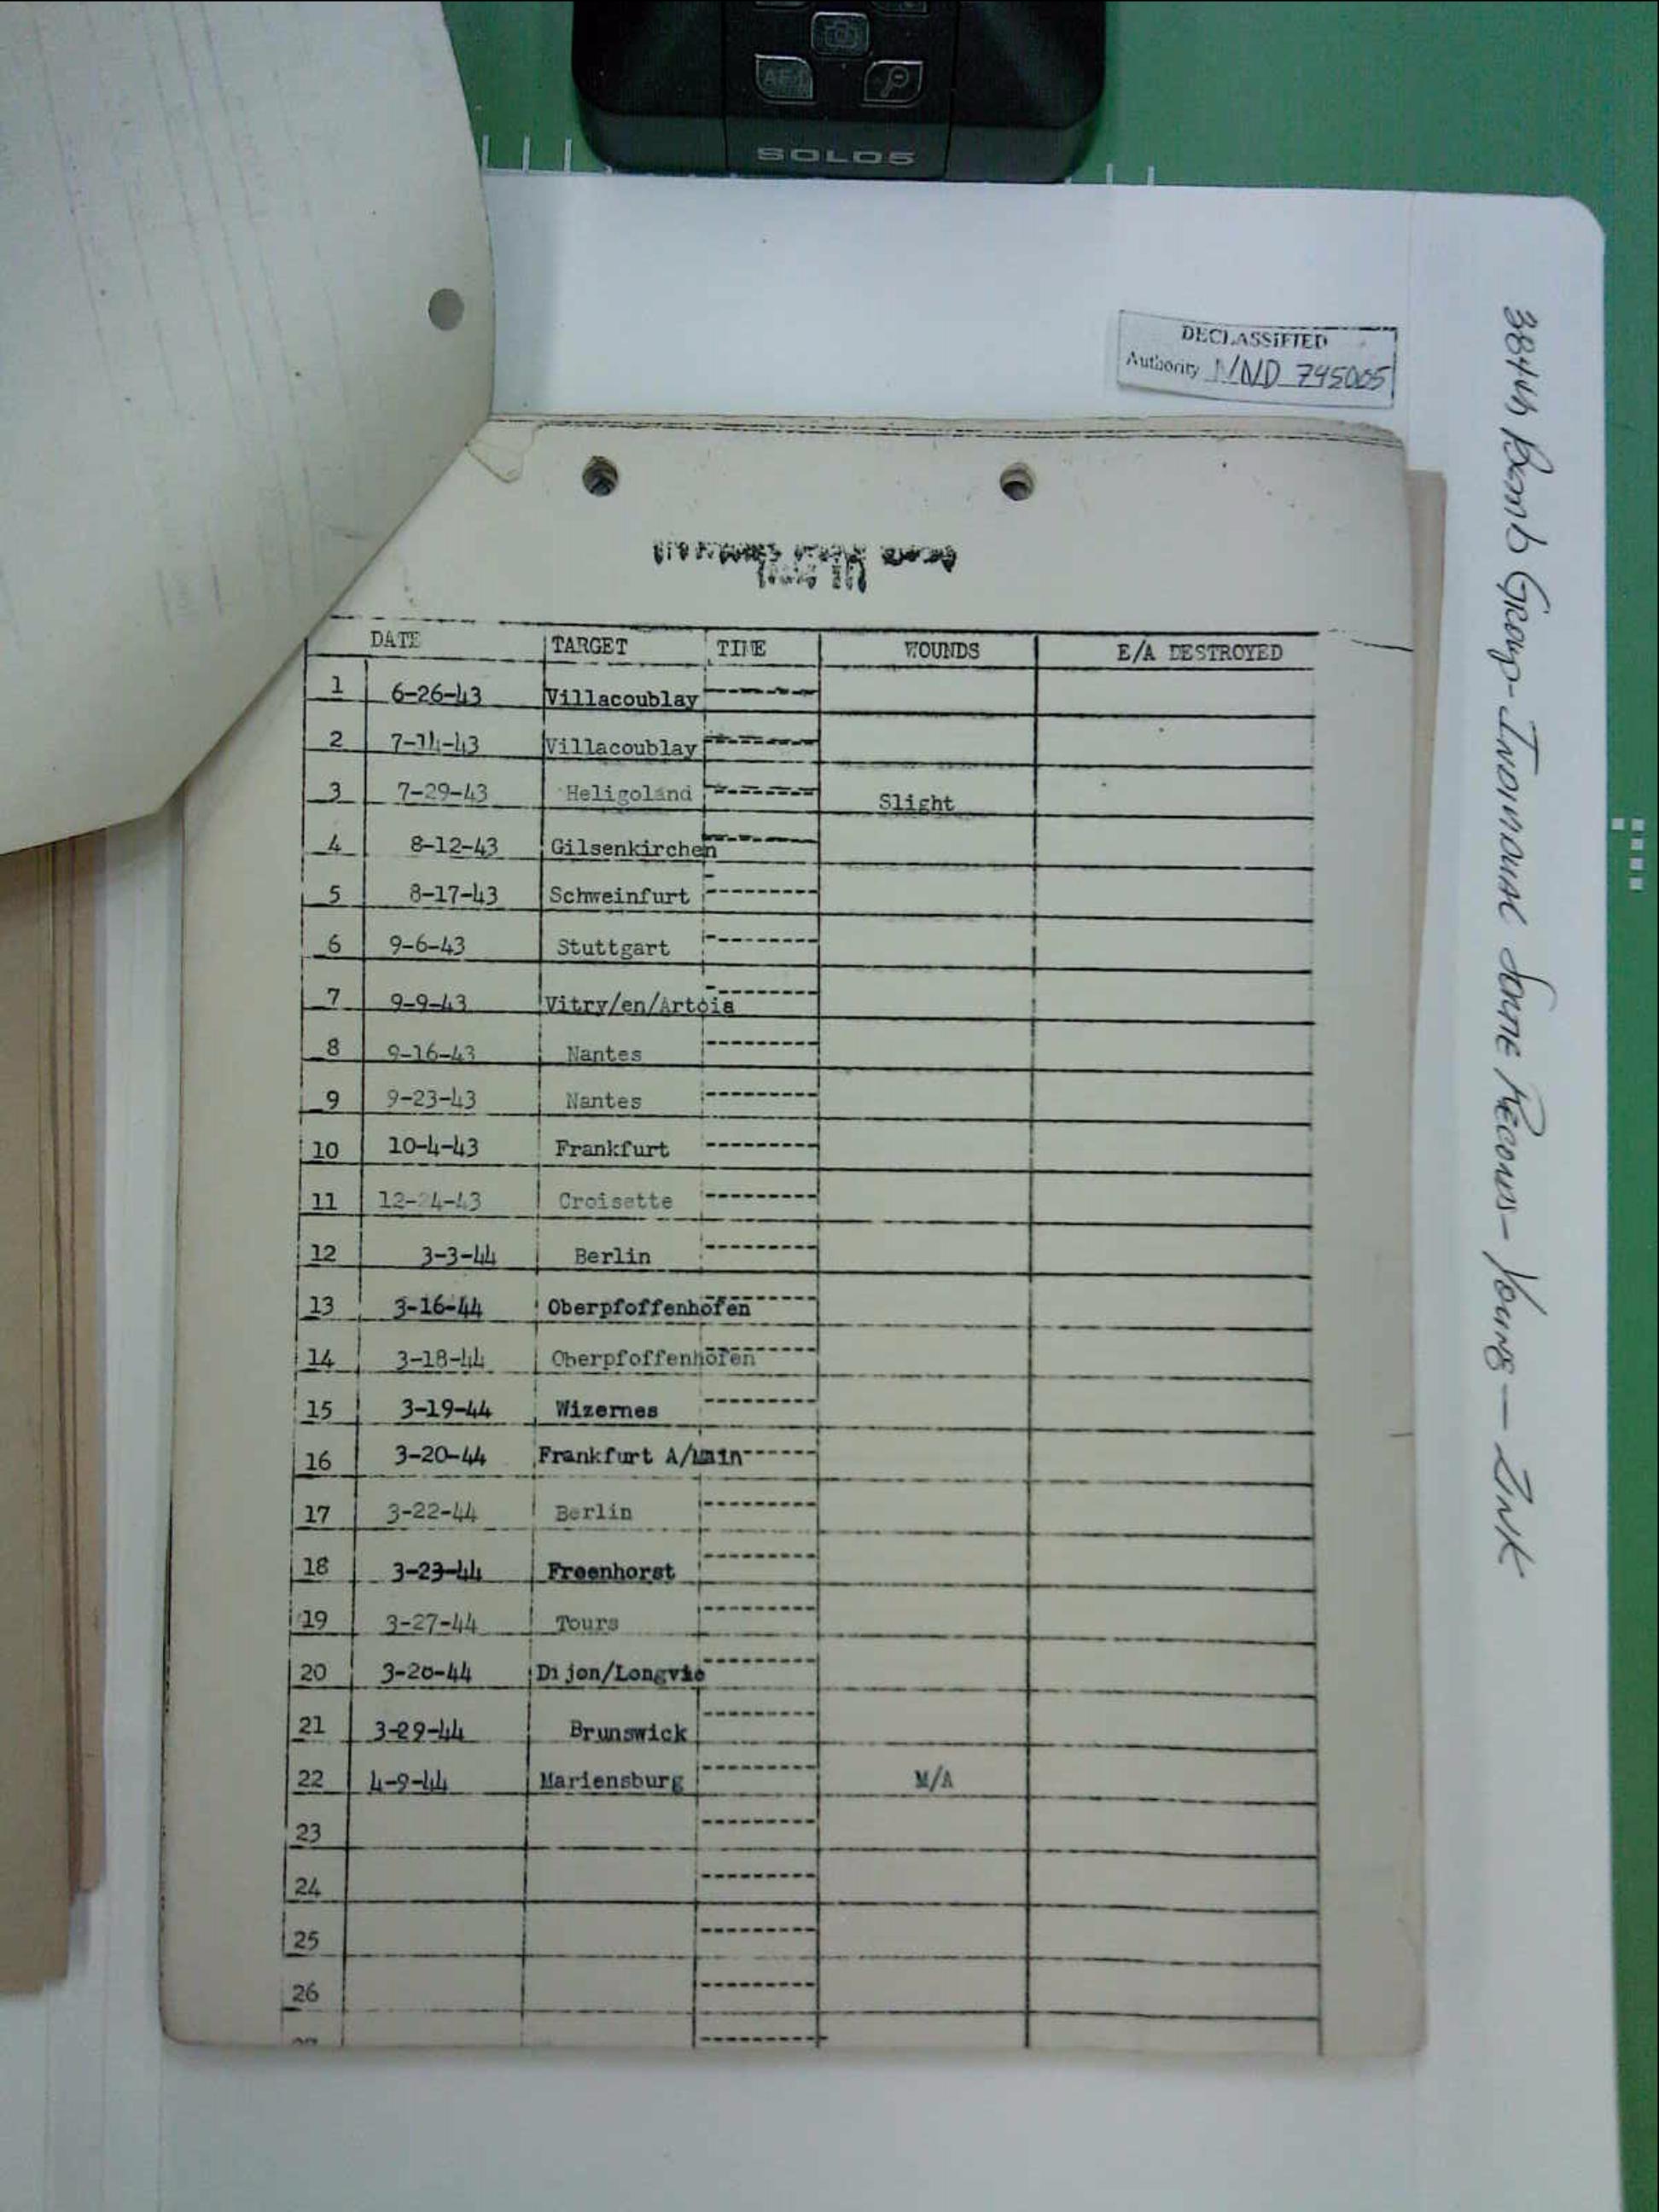 SOLO5
DECLASSIFIED
Authority NND 745005
384th Bomb Group - Individual Sortie Records - Young — Zink
DATE TARGET TIME WOUNDS E/A DESTROYED
1 6-26-43 Villacoublay
2 7-14-43 Villacoublay
3 7-29-43 Heligoland Slight
4 8-12-43 Gilsenkirchen
5 8-17-43 Schweinfurt
6 9-6-43 Stuttgart
7 9-9-43 Vitry/en/Artois
8 9-16-43 Nantes
9 9-23-43 Nantes
10 10-4-43 Frankfurt
11 12-24-43 Croisette
12 3-3-44 Berlin
13 3-16-44 Oberpfoffenhofen
14 3-18-44 Oberpfoffenhofen
15 3-19-44 Wizernes
16 3-20-44 Frankfurt A/Main
17 3-22-44 Berlin
18 3-23-44 Freenhorst
19 3-27-44 Tours
20 3-28-44 Dijon/Longvie
21 3-29-44 Brunswick
22 4-9-44 Mariensburg M/A
23
24
25
26